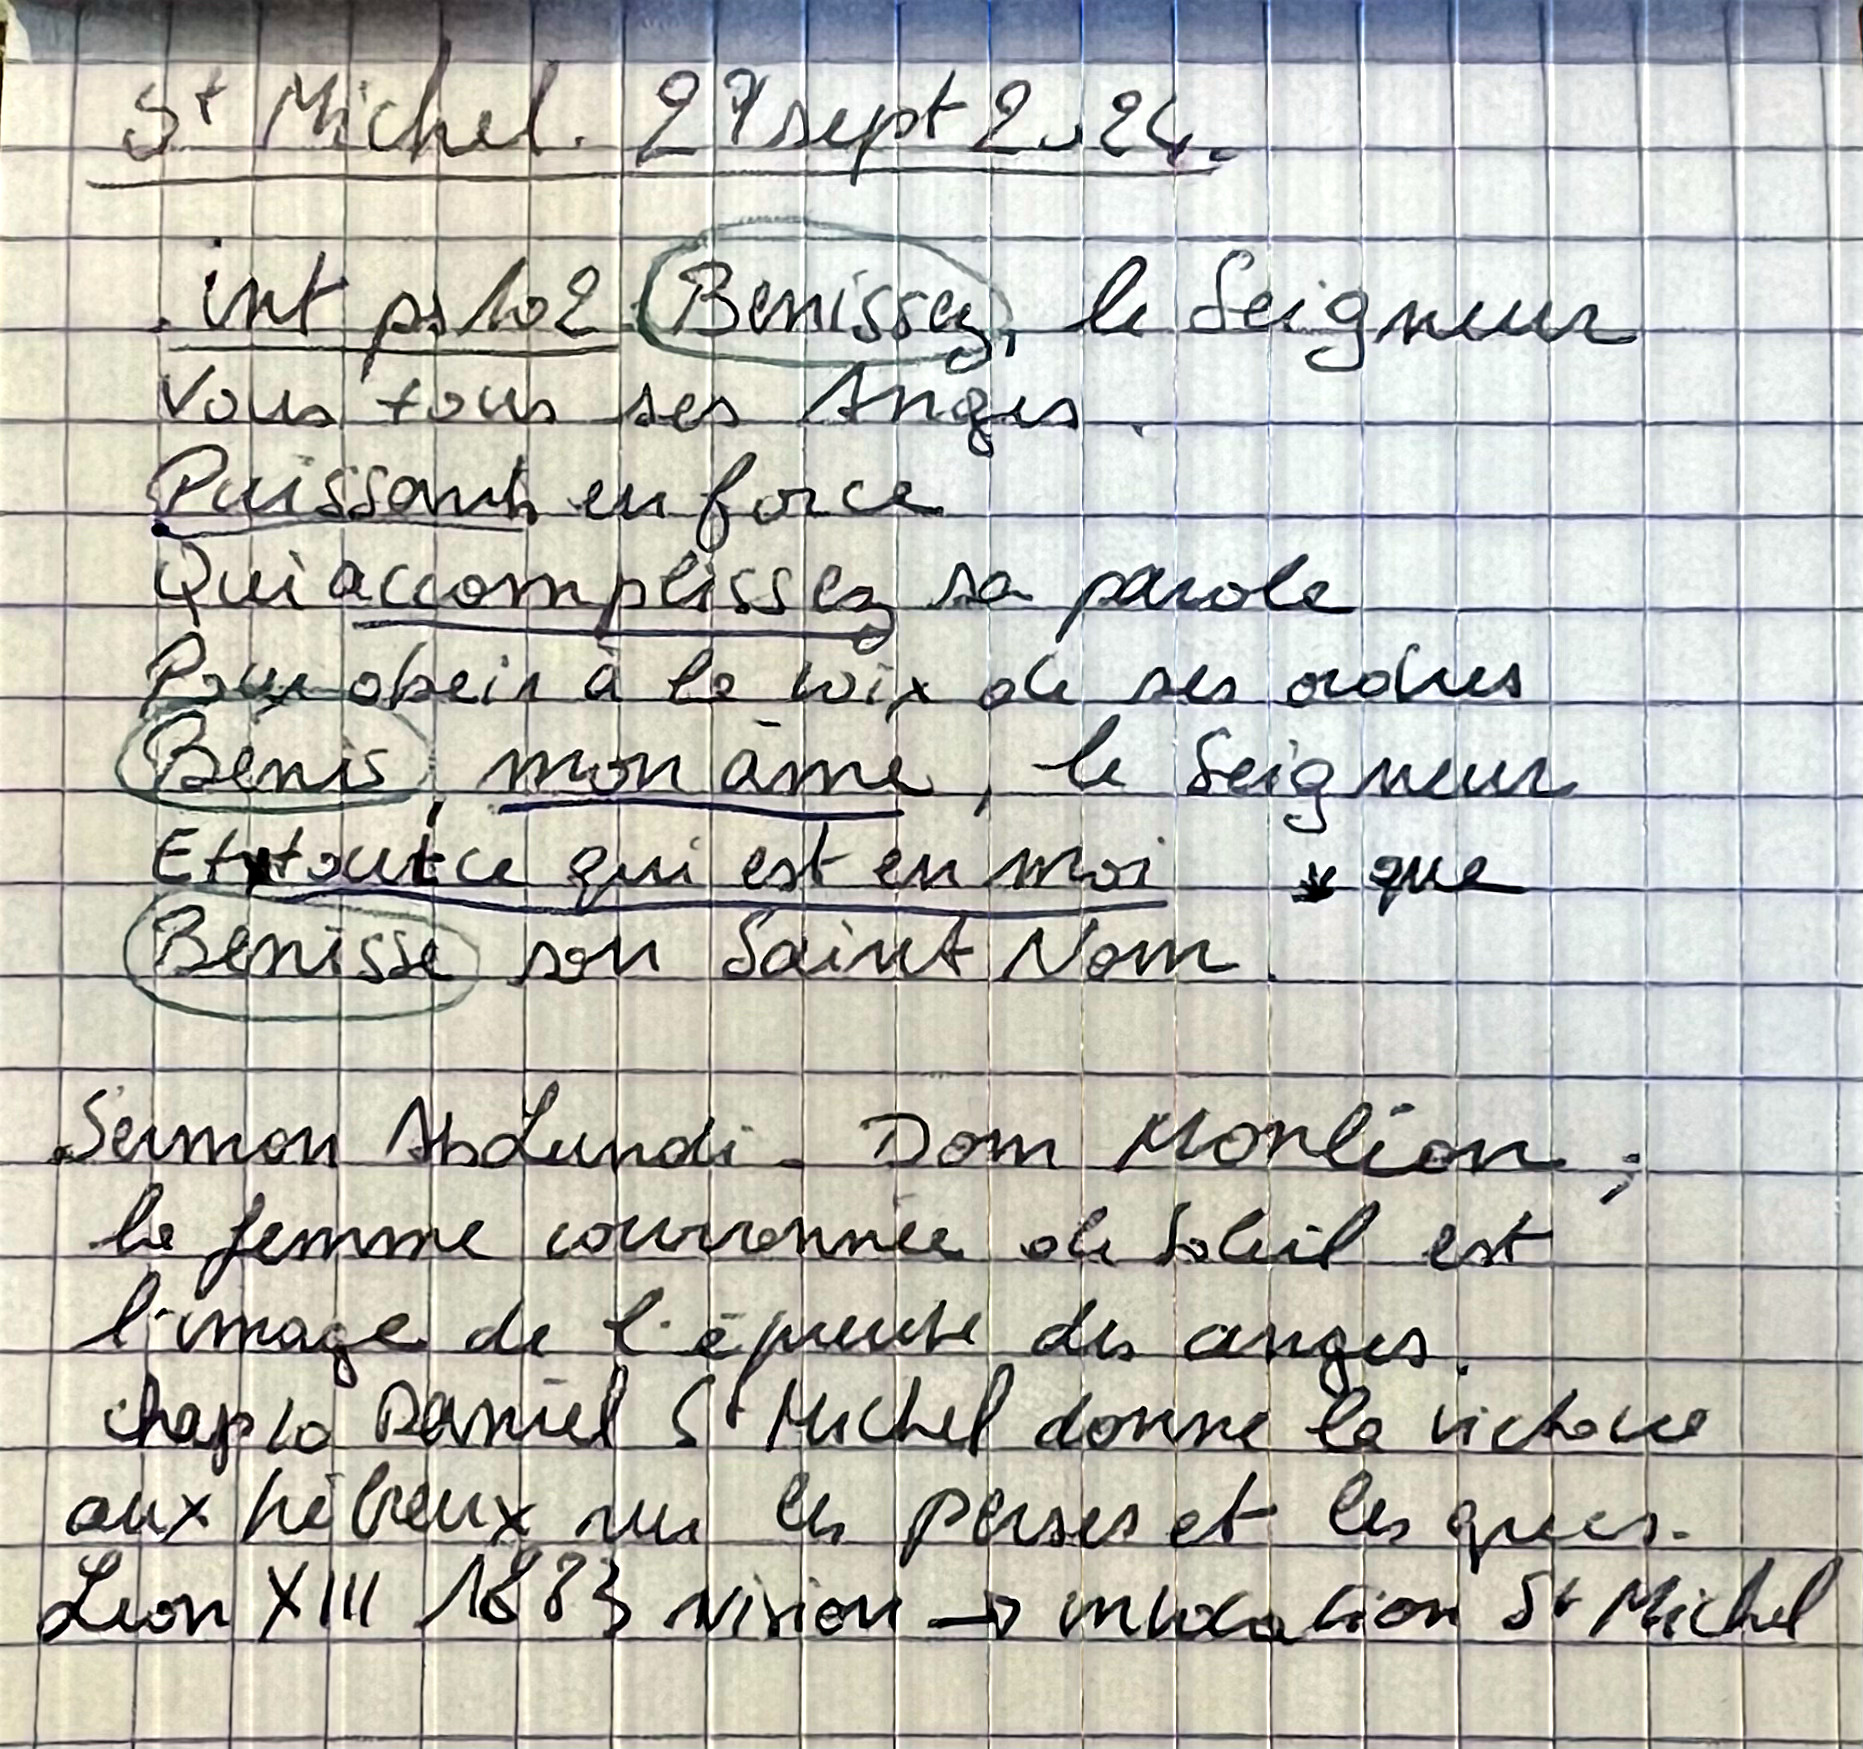 St Michel. 29 sept 2024.
. int ps 102. Benissez, le Seigneur
Vous tous ses Anges.
Puissants en force
Qui accomplissez sa parole
Pour obeir à la voix de ses ordres
Bénis, mon âme, le Seigneur
Et tout ce qui est en moi que
Benisse son Saint Nom.
Sermon Ab Lundi - Dom ;
la femme couronnée de Soleil est
l'image de l'épreuve des anges.
chap 10 Daniel St Michel donne la victoire
aux hébreux sur les perses et les grecs.
Leon XIII 1883 vision → invocation St Michel